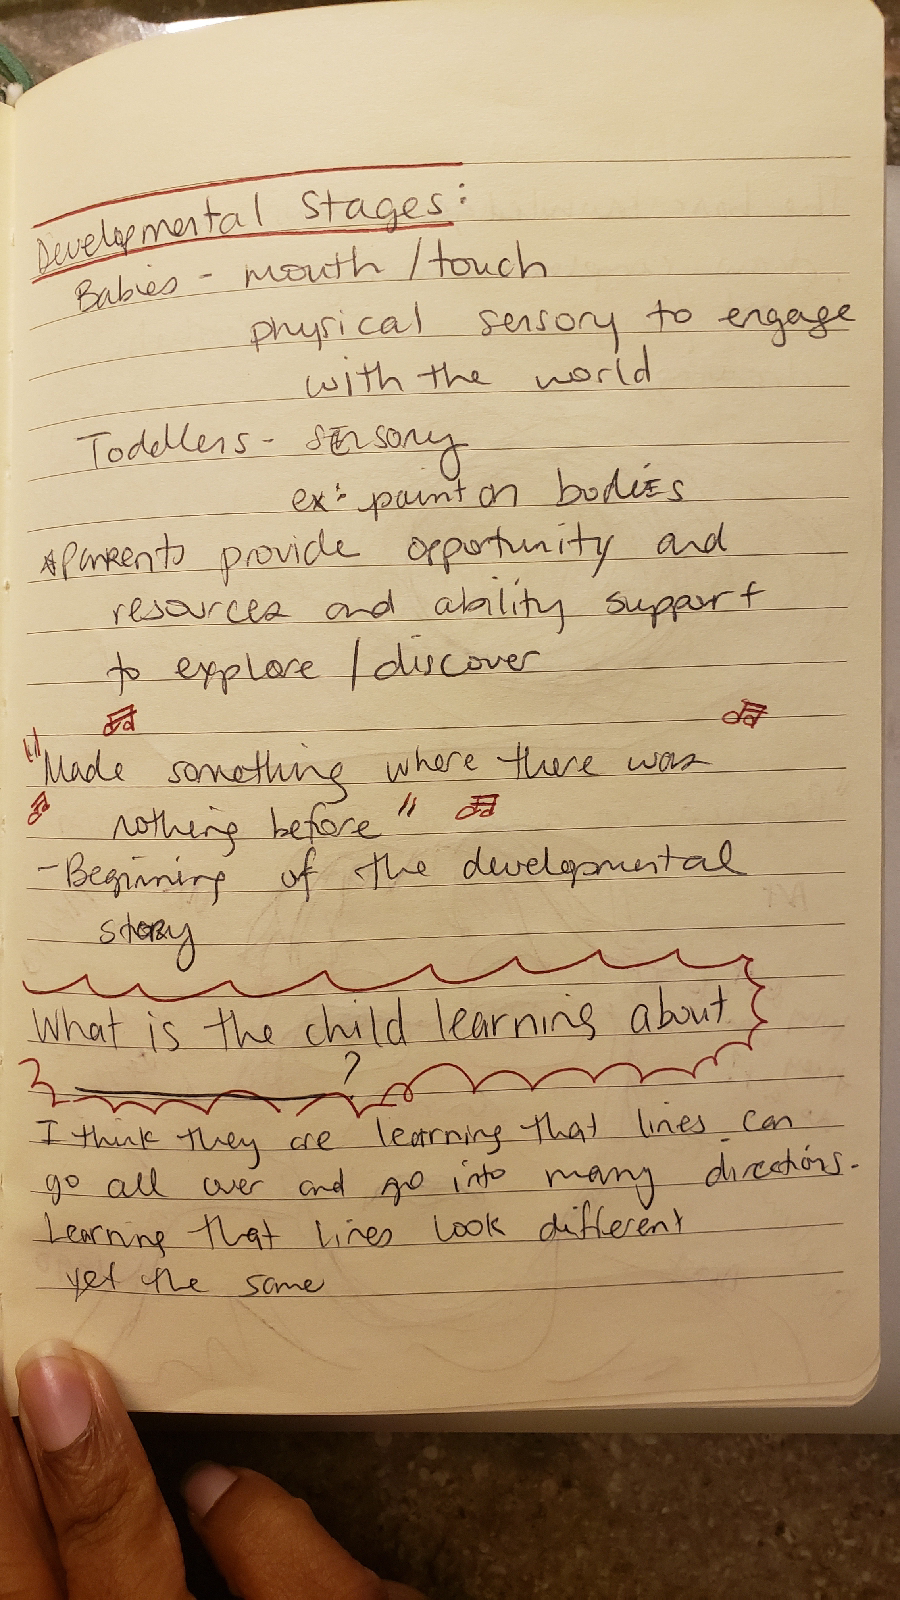 Developmental Stages:
Babies - mouth / touch
physical sensory to engage
with the world
Toddlers - sensory
ex: paint on bodies
*Parents provide opportunity and
resources and ability support
to explore / discover
"Made something where there was
nothing before"
- Beginning of the developmental
story
What is the child learning about
__________?
I think they are learning that lines can
go all over and go into many directions.
Learning that lines look different
yet the same